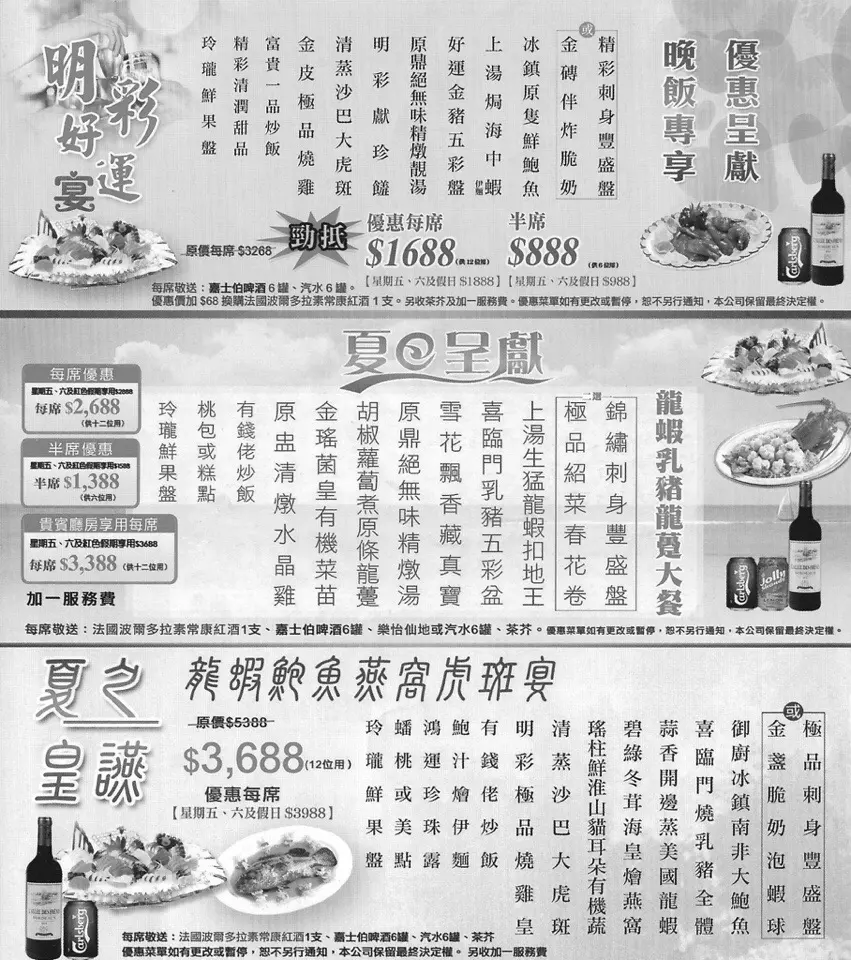 優惠呈獻
晚飯專享
精彩刺身豐盛盤
或
金磚伴炸脆奶
冰鎮原隻鮮鮑魚
上湯焗海中蝦 伊麵
好運金豬五彩盤
原鼎絕無味精燉靚湯
明彩獻珍饈
清蒸沙巴大虎斑
金皮極品燒雞
富貴一品炒飯
精彩清潤甜品
玲瓏鮮果盤
明彩好運宴
原價每席 $3268
勁抵
優惠每席
$1688(供12位用)
【星期五、六及假日 $1888】
半席
$888
(供6位用)
【星期五、六及假日 $988】
Carlsberg
每席敬送：嘉士伯啤酒 6 罐、汽水 6 罐。
優惠價加 $68 換購法國波爾多拉素常康紅酒 1 支。另收茶芥及加一服務費。優惠菜單如有更改或暫停，恕不另行通知，本公司保留最終決定權。
夏日呈獻
龍蝦乳豬龍躉大餐
二選一
錦繡刺身豐盛盤
極品紹菜春花卷
上湯生猛龍蝦扣地王
喜臨門乳豬五彩盆
雪花飄香藏真寶
原鼎絕無味精燉湯
胡椒蘿蔔煮原條龍躉
金瑤菌皇有機菜苗
原盅清燉水晶雞
有錢佬炒飯
桃包或糕點
玲瓏鮮果盤
每席優惠
星期五、六及紅色假期享用$2888
每席 $2,688
(供十二位用)
半席優惠
星期五、六及紅色假期享用$1588
半席 $1,388
(供六位用)
貴賓廳房享用每席
星期五、六及紅色假期享用$3688
每席 $3,388 (供十二位用)
加一服務費
Carlsberg
Jolly
每席敬送：法國波爾多拉素常康紅酒1支、嘉士伯啤酒6罐、樂怡仙地或汽水6罐、茶芥。優惠菜單如有更改或暫停，恕不另行通知，本公司保留最終決定權。
夏之皇讌
龍蝦鮑魚燕窩虎斑宴
原價$5388
$3,688(12位用)
優惠每席
【星期五、六及假日 $3988】
極品刺身豐盛盤
或
金盞脆奶泡蝦球
御廚冰鎮南非大鮑魚
喜臨門燒乳豬全體
蒜香開邊蒸美國龍蝦
碧綠冬茸海皇燴燕窩
瑤柱鮮淮山貓耳朵有機蔬
清蒸沙巴大虎斑
明彩極品燒雞皇
有錢佬炒飯
鮑汁燴伊麵
鴻運珍珠露
蟠桃或美點
玲瓏鮮果盤
Carlsberg
每席敬送：法國波爾多拉素常康紅酒1支、嘉士伯啤酒6罐、汽水6罐、茶芥
優惠菜單如有更改或暫停，恕不另行通知，本公司保留最終決定權。 另收加一服務費